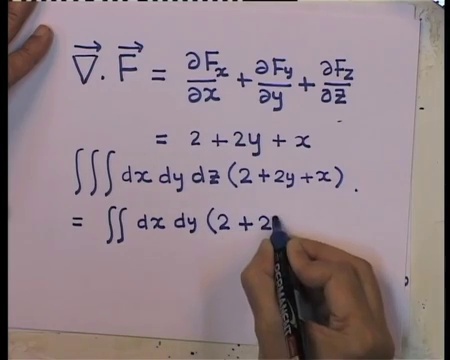 ∇⃗ . F⃗ = ∂Fx/∂x + ∂Fy/∂y + ∂Fz/∂z
= 2 + 2y + x
∫∫∫ dx dy dz (2 + 2y + x) .
= ∫∫ dx dy (2 + 2